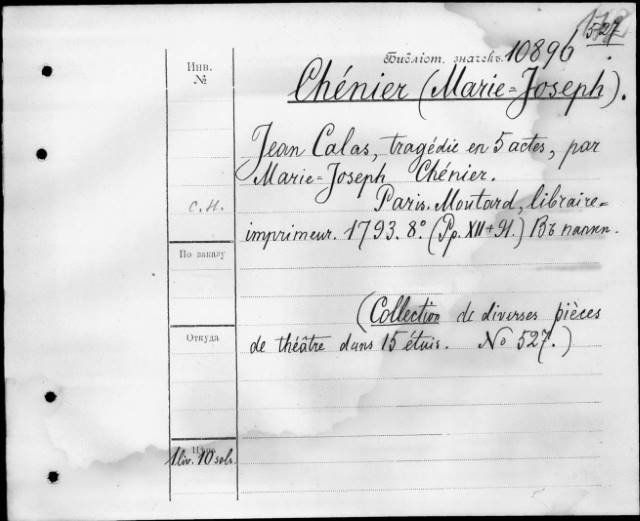 527
Библіот. значекъ 10896
Инв.
№
Chénier (Marie=Joseph).
Jean Calas, tragédie en 5 actes, par
Marie=Joseph Chénier.
С.Н.
Paris. Moutard, libraire=
imprimeur. 1793. 8º. (Pp. XII + 91.) Въ папкѣ.
По заказу
(Collection de diverses pièces
Откуда
de théâtre dans 15 étuis. No 527.)
1 liv. 10 sols